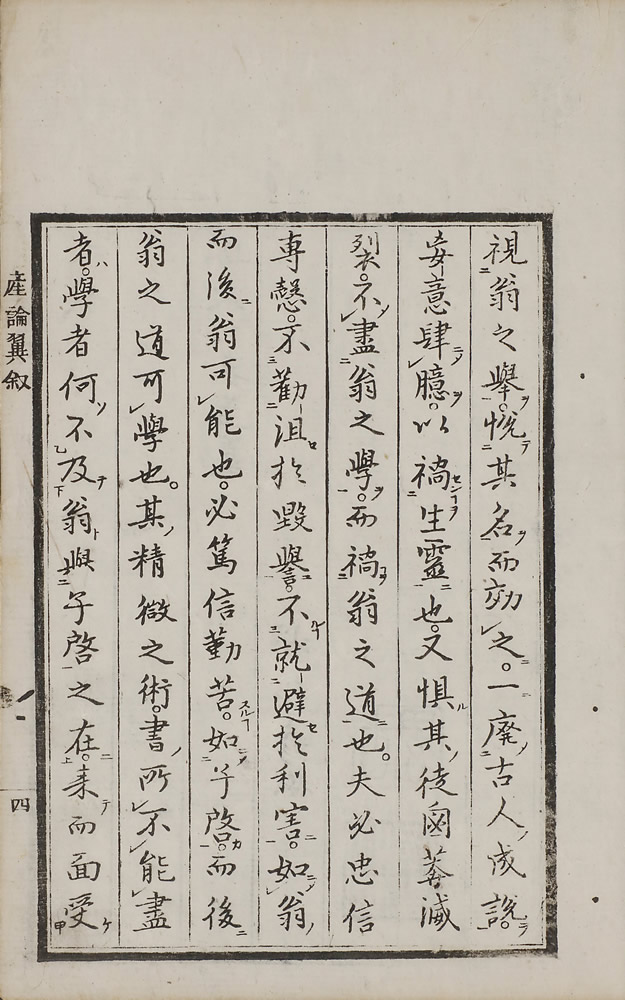 視翁之舉。悅其名而効之。一廢古人成說。
妄意肆臆。以禍生靈也。又懼其徒鹵莽滅
裂。不盡翁之學。而禍翁之道也。夫必忠信
專愨。不勸沮於毀譽。不就避於利害。如翁
而後翁可能也。必篤信勤苦。如子啓。而後
翁之道可學也。其精微之術。書所不能盡
者。學者何不及翁與子啓之在。來而面受
產論翼敘
四